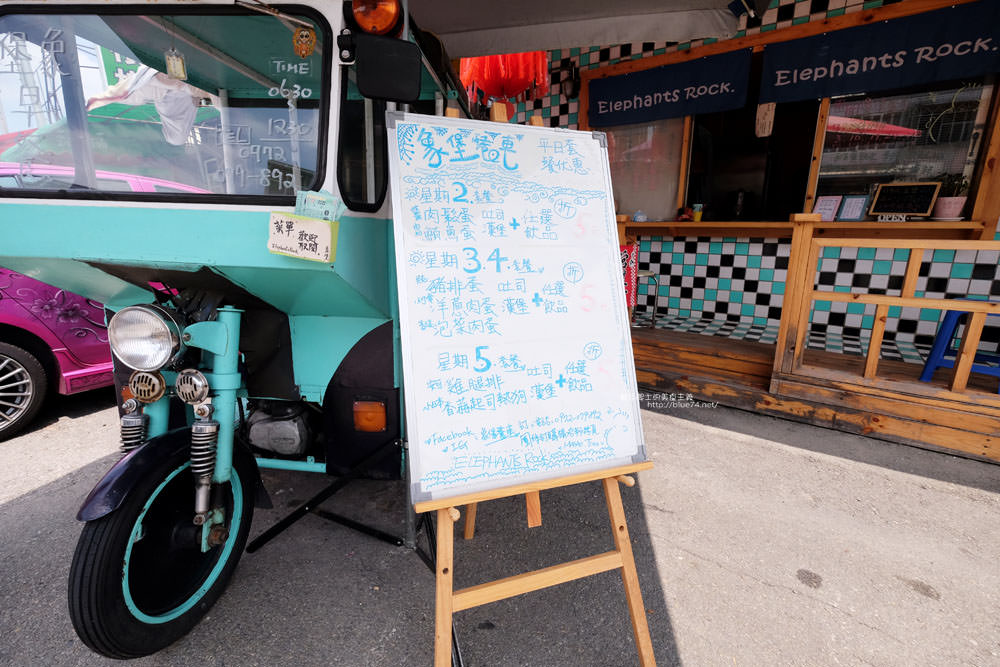 TIME
0630
1330
Elephants Rock.
Elephants Rock.
OPEN
菜單 歡迎
取閱
象堡蛋
平日套
餐優惠
星期2.套餐
肉鬆蛋 吐司 + 任選
鮪魚蛋 漢堡 飲品
折
5
星期3.4.套餐
豬排蛋 吐司 + 任選
洋蔥肉蛋 漢堡 飲品
泡菜肉蛋
折
5
星期5套餐
雞腿排 吐司 + 任選
香蒜起司熱狗 漢堡 飲品
折
5
Facebook
IG
ELEPHANTS Rock
http://blue74.net/